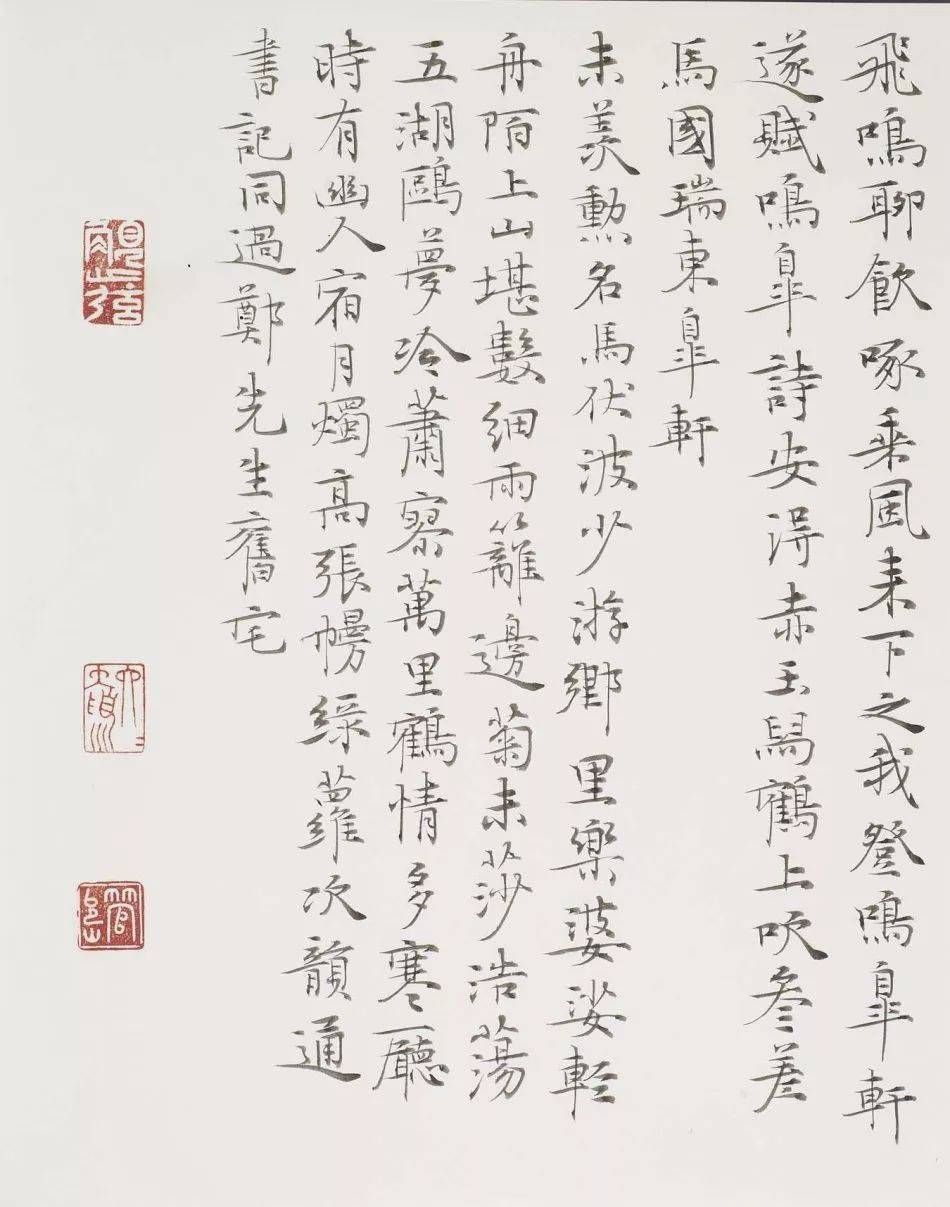 飛鳴聊飲啄乘風来下之我登鳴皐軒
遂賦鳴皐詩安得赤玉舄鶴上吹參差
馬國瑞東皐軒
未羨勲名馬伏波少游鄉里樂婆娑輕
舟陌上山堪數細雨籬邊菊未莎浩蕩
五湖鷗夢冷蕭寥萬里鶴情多寒廳
時有幽人宿月燭高張幌綠蘿次韻通
書記同過鄭先生舊宅